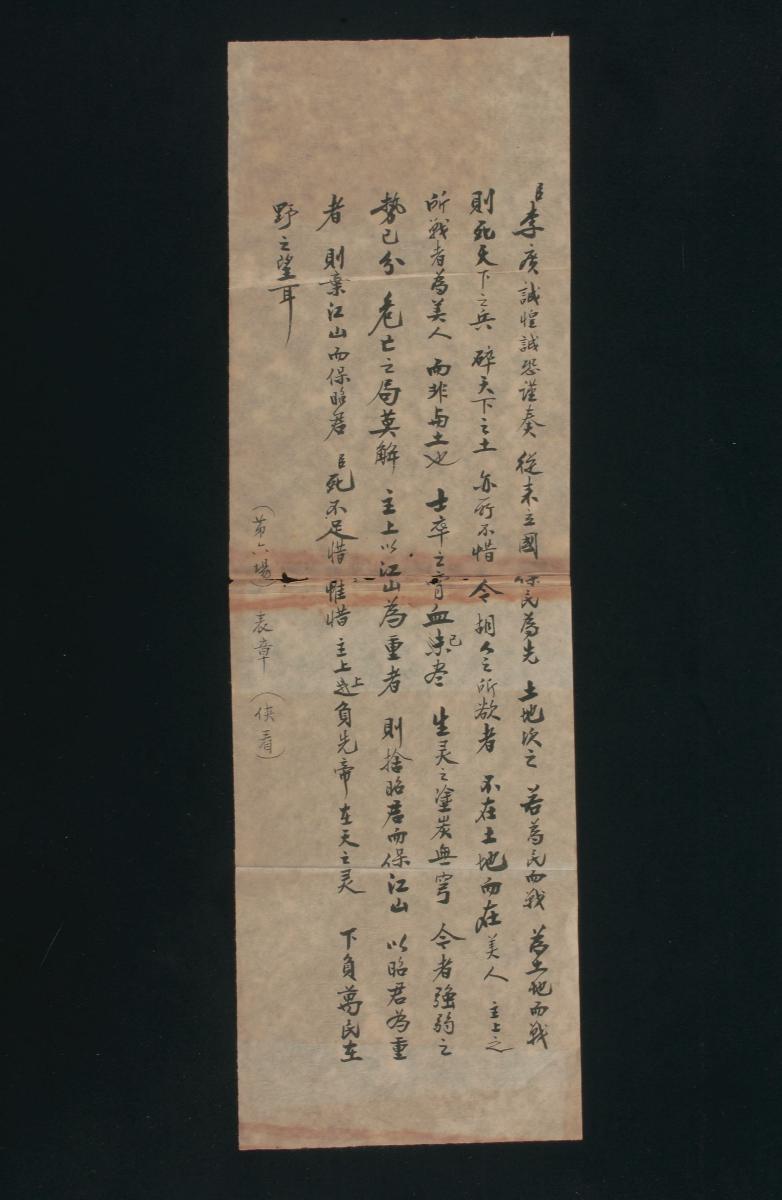 臣李廣誠惶誠恐謹奏 從来立國 保民為先 土地次之 若為民而戰 為土地而戰
則死天下之兵 碎天下之土 亦所不惜 今胡人之所欲者 不在土地而在美人 主上之
所戰者為美人 而非為土地也 士卒之膏血已尽 生灵之塗炭無穹 今者強弱之
勢已分 危亡之局莫解 主上以江山為重者 則捨昭君而保江山 以昭君為重
者 則棄江山而保昭君 臣死不足惜 惟惜主上上負先帝在天之灵 下負萬民在
野之望耳
（第六場） 表章 （俠看）